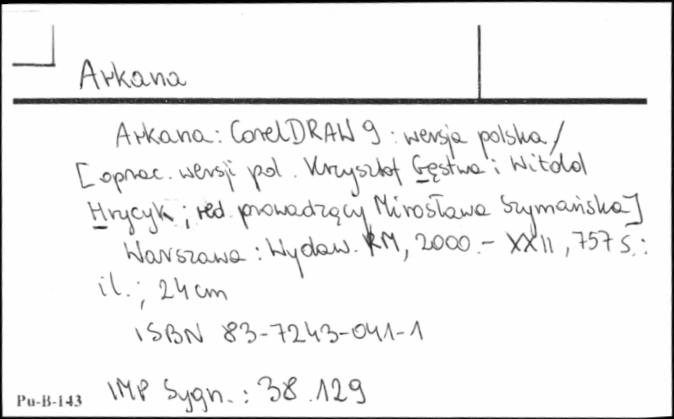 Arkana
Arkana: CorelDRAW 9 : wersja polska /
[oprac. wersji pol. Krzysztof Gęstwa i Witold
Hrycyk ; red. prowadzący Mirosława Szymańska]
Warszawa : Wydaw. RM, 2000. - XXII, 757 s. :
il. ; 24 cm
ISBN 83-7243-041-1
Pu-B-143 IMP Sygn. : 38.129